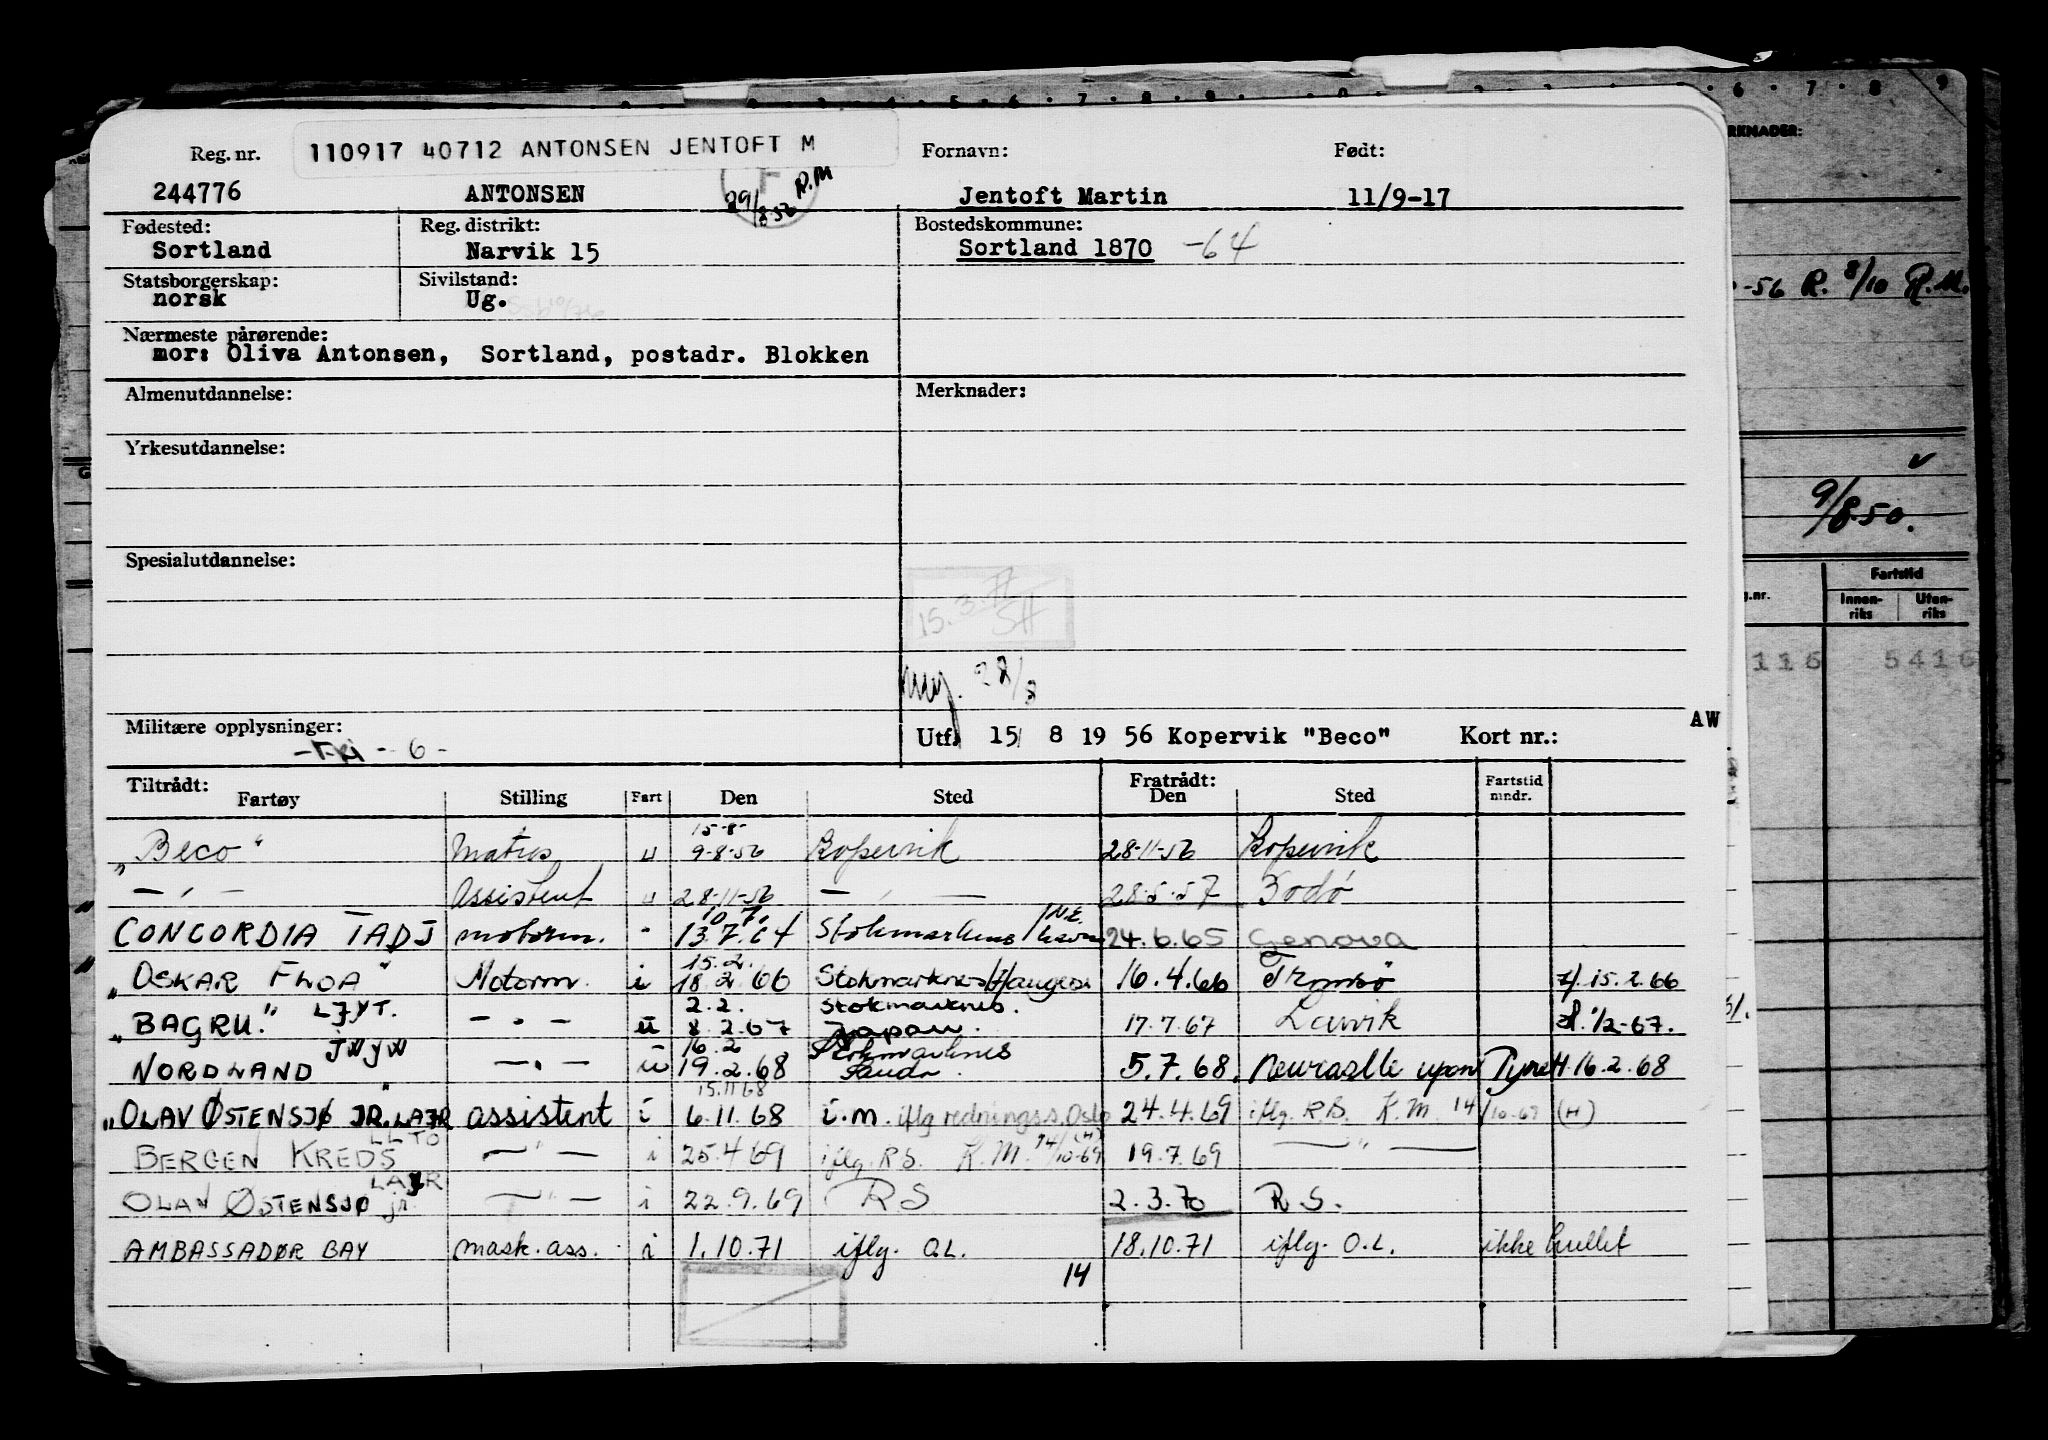 Reg. nr. 110917 40712 ANTONSEN JENTOFT M Fornavn: Født:
244776 ANTONSEN 29/8.56 R.M Jentoft Martin 11/9-17
Fødested: Reg. distrikt: Bostedskommune:
Sortland Narvik 15 Sortland 1870 -64
Statsborgerskap: Sivilstand:
norsk Ug.
Nærmeste pårørende:
mor: Oliva Antonsen, Sortland, postadr. Blokken
Almenutdannelse: Merknader:
Yrkesutdannelse:
Spesialutdannelse:
15.3.72
SH
28/8
Militære opplysninger: Utf. 15/ 8 19 56 Kopervik "Beco" Kort nr.: AW
-Fri - 6 -
Tiltrådt: Fratrådt: Fartstid
Fartøy Stilling Fart Den Sted Den Sted mndr.
15-8-
"Beco" Matros u 9-8-56 Kopervik 28-11-56 Kopervik
— " — Assistent u 28-11-56 — " — 28.5.57 Bodø
10.7.
CONCORDIA TADJ motorm. " 13.7.64 Stokmarknes / 24.6.65 Genova
15.2.
"OSKAR FLOA" Motorm. i 18.2.66 Stokmarknes/Haugesu 16.4.66 Tromsø 15.2.66
LJYT. 2.2. Stokmarknes.
"BAGRU." — " — u 8.2.67 Japan. 17.7.67 Larvik 1/2-67.
JWYW 16.2 Stokmarknes
NORDLAND — " — u 19.2.68 Sauda. 5.7.68. Newcastle upon Tyne H. 16.2.68
15.11.68
"OLAV ØSTENSJØ JR. LAJR assistent i 6.11.68 i.m. iflg redningss. Oslo 24.4.69 iflg. R.S. K.M. 14/10-69 (H)
LLTO
BERGEN KREDS — " — i 25.4.69 iflg. R.S. K.M. 14/10-69 (H) 19.7.69 — " —
LAJR
OLAV ØSTENSJØ jr. — " — i 22.9.69 RS 2.3.70 R.S.
AMBASSADØR BAY mask.ass. i 1.10.71 iflg. O.L. 18.10.71 iflg. O.L. ikke hullet
14
6 . 7 . 8 9
RKNADER:
-56 R. 8/10 R.M.
9/8.50.
Fartstid
g.nr. Innen-riks Uten-riks
116 5416